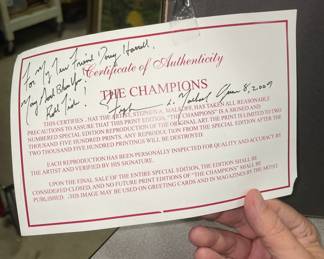 For My New Friend Tony Harrell
May God Bless You
Certificate of Authenticity
THE CHAMPIONS
June 8, 2009
THIS CERTIFIES , HAT THE ARTIST, STEPHEN A. MALKOFF, HAS TAKEN ALL REASONABLE
PRECAUTIONS TO ASSURE THAT THIS PRINT EDITION, "THE CHAMPIONS" IS A SIGNED AND
NUMBERED SPECIAL EDITION REPRODUCTION OF THE ORIGINAL ART. THE PRINT IS LIMITED TO
TWO THOUSAND FIVE HUNDRED PRINTS. ANY REPRODUCTION FROM THE SPECIAL EDITION AFTER THE
TWO THOUSAND FIVE HUNDRED PRINTINGS WILL BE DESTROYED.
EACH REPRODUCTION HAS BEEN PERSONALLY INSPECTED FOR QUALITY AND ACCURACY BY
THE ARTIST AND VERIFIED BY HIS SIGNATURE.
UPON THE FINAL SALE OF THE ENTIRE SPECIAL EDITION, THE EDITION SHALL BE
CONSIDERED CLOSED, AND NO FUTURE PRINT EDITIONS OF "THE CHAMPIONS" SHALL BE
PUBLISHED. THIS IMAGE MAY BE USED ON GREETING CARDS AND IN MAGAZINES BY THE ARTIST